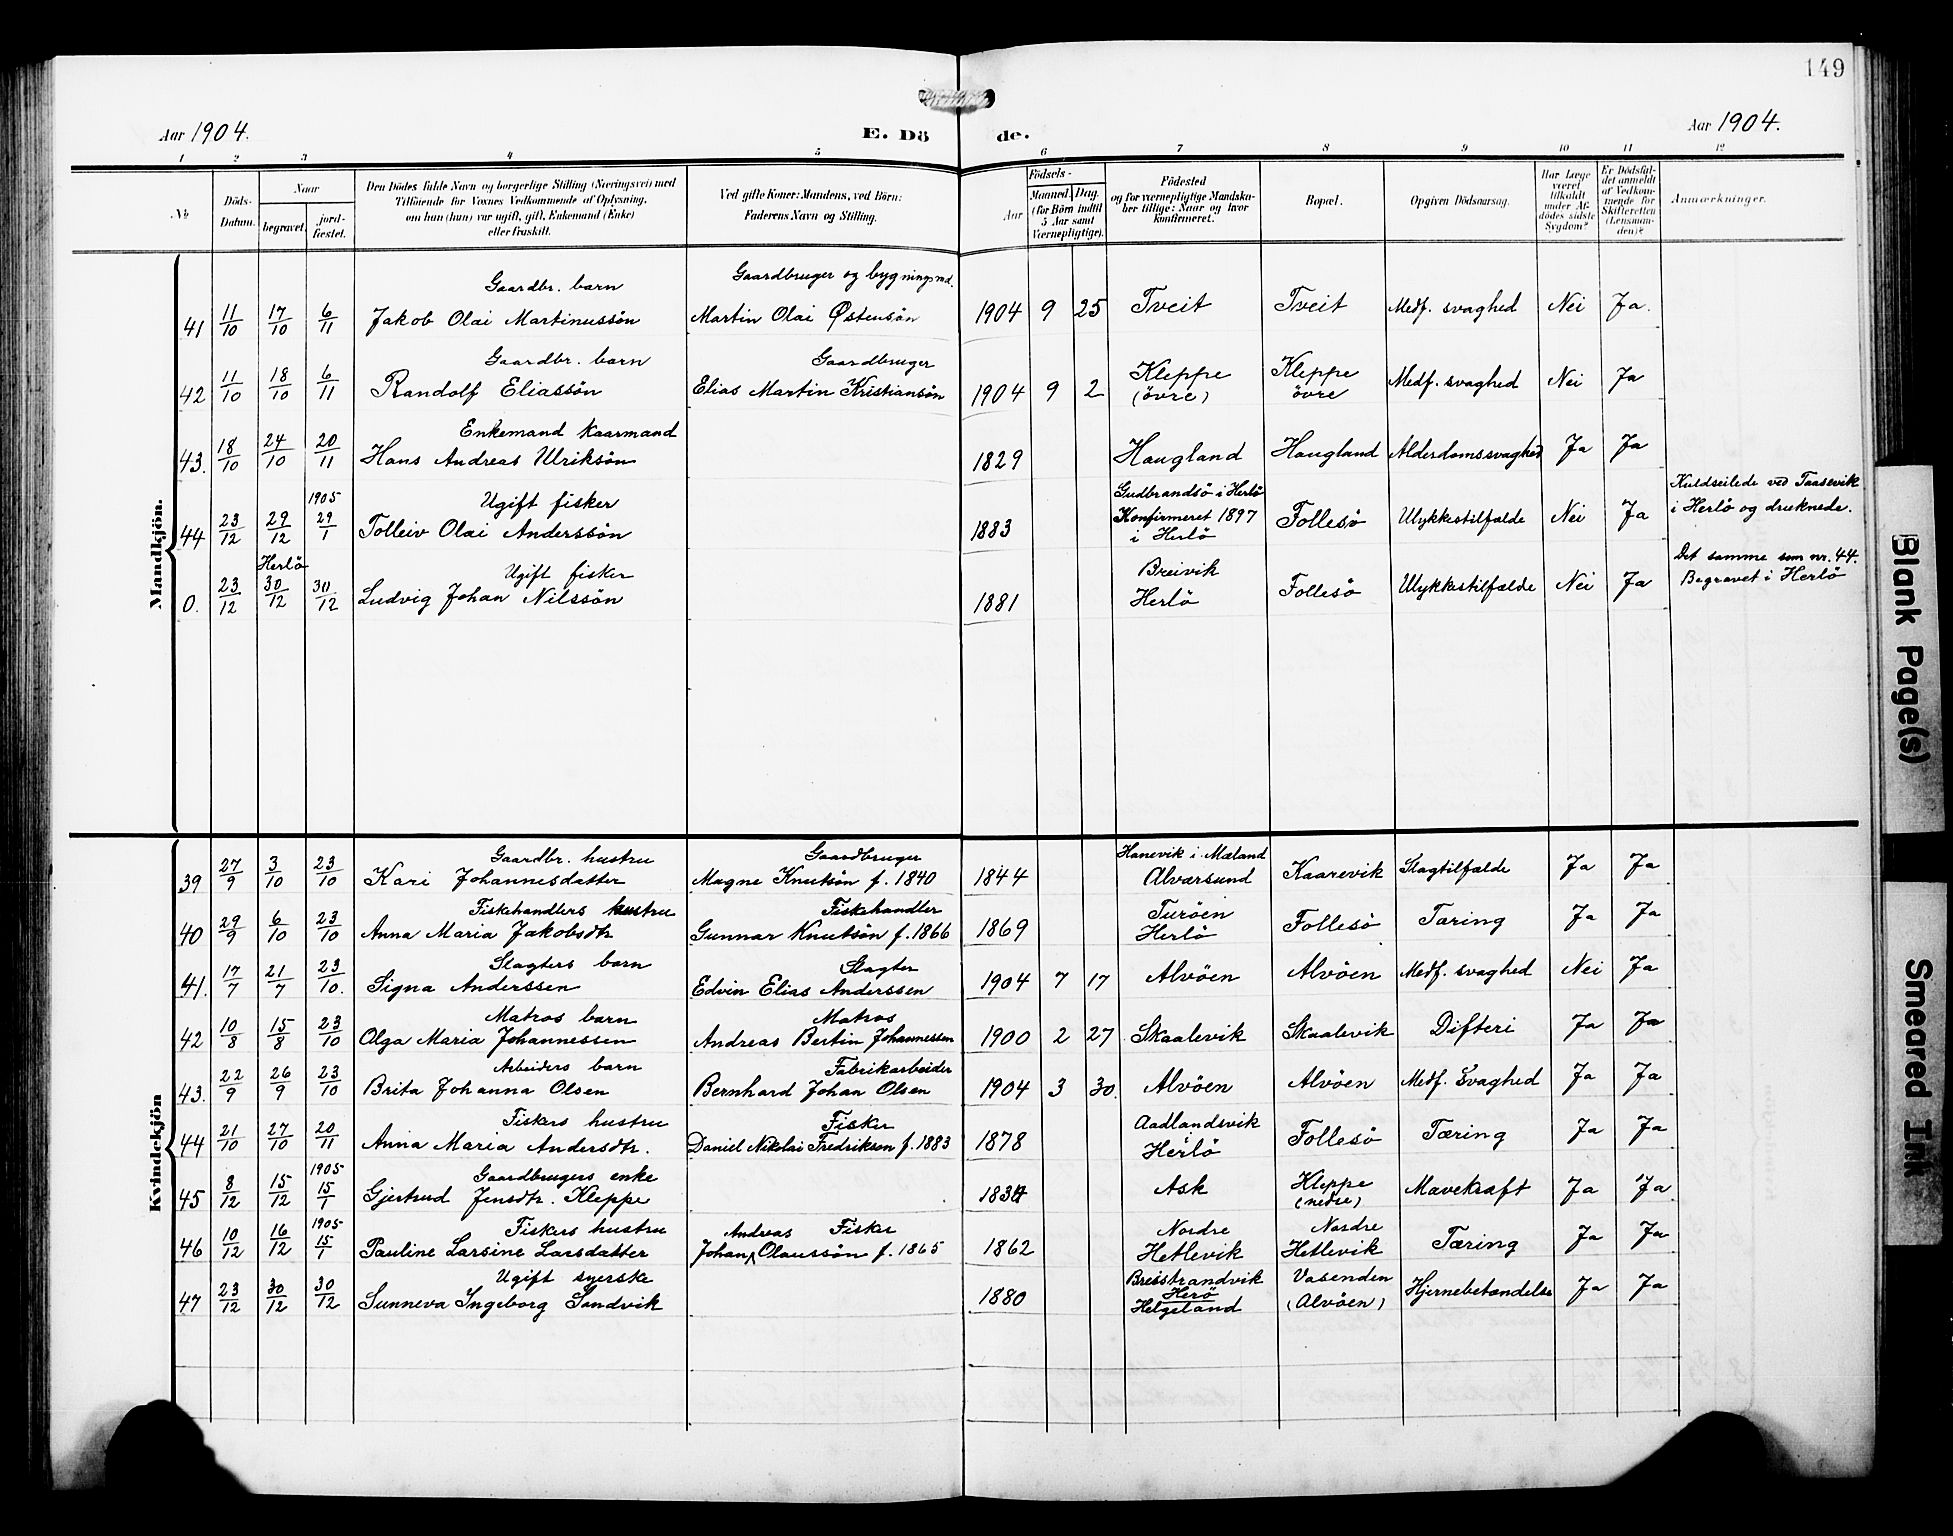 149
Aar 1904.
E. Döde.
Aar 1904.
1 2 3 4 5 6 7 8 9 10 11 12
No
Döds-Datum.
Naar
begravet.
jord-fæstet.
Den Dödes fulde Navn og borgerlige Stilling (Næringsvei) med
Tilföiende for Voxnes Vedkommende af Oplysning,
om han (hun) var ugift, gift, Enkemand (Enke)
eller fraskilt.
Ved gifte Koner: Mandens, ved Börn:
Faderens Navn og Stilling.
Födsels-
Aar
Maaned. Dag.
(for Börn indtil
5 Aar samt
Værnepligtige).
Födested
og for værnepligtige Mandska-
ber tillige: Naar og hvor
konfirmeret.
Bopæl.
Opgiven Dödsaarsag.
Har Læge
været
tilkaldt
under Af-
dödes sidste
Sygdom?
Er Dödsfal-
det anmeldt
af Vedkom-
mende for
Skifteretten
(Lensman-
den)?
Anmærkninger.
Mandkjön.
Gaardbr. barn Gaardbruger og bygningsmd.
41 11/10 17/10 6/11 Jakob Olai Martinussön Martin Olai Östensön 1904 9 25 Tveit Tveit Medf. svaghed Nei Ja.
Gaardbr. barn Gaardbruger
42 11/10 18/10 6/11 Randolf Eliassön Elias Martin Kristiansön 1904 9 2 Kleppe (övre) Kleppe övre Medf. svaghed Nei Ja
Enkemand Kaarmand
43. 18/10 24/10 20/11 Hans Andreas Ulriksön 1829 Haugland Haugland Alderdomssvaghed Ja Ja
1905 Ugift fisker Gudbrandsö i Herlö Kuldseilede ved Taasevik
44 23/12 29/12 29/1 Tolleiv Olai Anderssön 1883 Konfirmeret 1897 i Herlö Follesö Ulykkestilfælde Nei Ja i Herlö og druknede.
Herlö Ugift fisker Breivik Det samme som nr. 44.
0. 23/12 30/12 30/12 Ludvig Johan Nilssön 1881 Herlö Follesö Ulykkestilfælde Nei Ja Begravet i Herlö
Kvindekjön
Gaardbr. hustru Gaardbruger Hanevik i Mæland
39 27/9 3/10 23/10 Kari Johannesdatter Magne Knutsön f. 1840 1844 Alværsund Kaarevik Slagtilfælde Ja Ja
Fiskehandlers hustru Fiskehandler Turöen
40 29/9 6/10 23/10 Anna Maria Jakobsdtr Gunnar Knutsön f. 1866 1869 Herlö Follesö Tæring Ja Ja
Slagters barn Slagter
41. 17/7 21/7 23/10. Signa Anderssen Edvin Elias Anderssen 1904 7 17 Alvöen Alvöen Medf. svaghed Nei Ja
Matros barn Matros
42 10/8 15/8 23/10 Olga Maria Johannessen Andreas Bertin Johannessen 1900 2 27 Skaalevik Skaalevik Difteri Ja Ja
Arbeiders barn Fabrikarbeider
43. 22/9 26/9 23/10 Brita Johanna Olsen Bernhard Johan Olsen 1904 3 30. Alvöen Alvöen Medf. Svaghed Ja Ja
Fiskers hustru Fisker Aadlandsvik
44 21/10 27/10 20/11 Anna Maria Andersdtr. Daniel Nikolai Fredriksen f. 1883 1878 Herlö Follesö Tæring Ja Ja
1905 Gaardbrugers enke
45 8/12 15/12 15/1 Gjertrud Jensdtr. Kleppe Ask Kleppe (nedre) Mavekræft Ja Ja
1905 Fiskers hustru Andreas Fisker Nordre Nordre
46 10/12 16/12 15/1 Pauline Larsine Larsdatter Johan Olaussön f. 1865 1862 Hetlevik Hetlevik Tæring Ja Ja
Ugift syerske Breistrandvik Vasenden
47 23/12 30/12 30/12 Sunneva Ingeborg Sandvik 1880 Herö Helgeland (Alvöen) Hjernebetændelse Ja Ja
Blank Page(s)
Smeared Ink